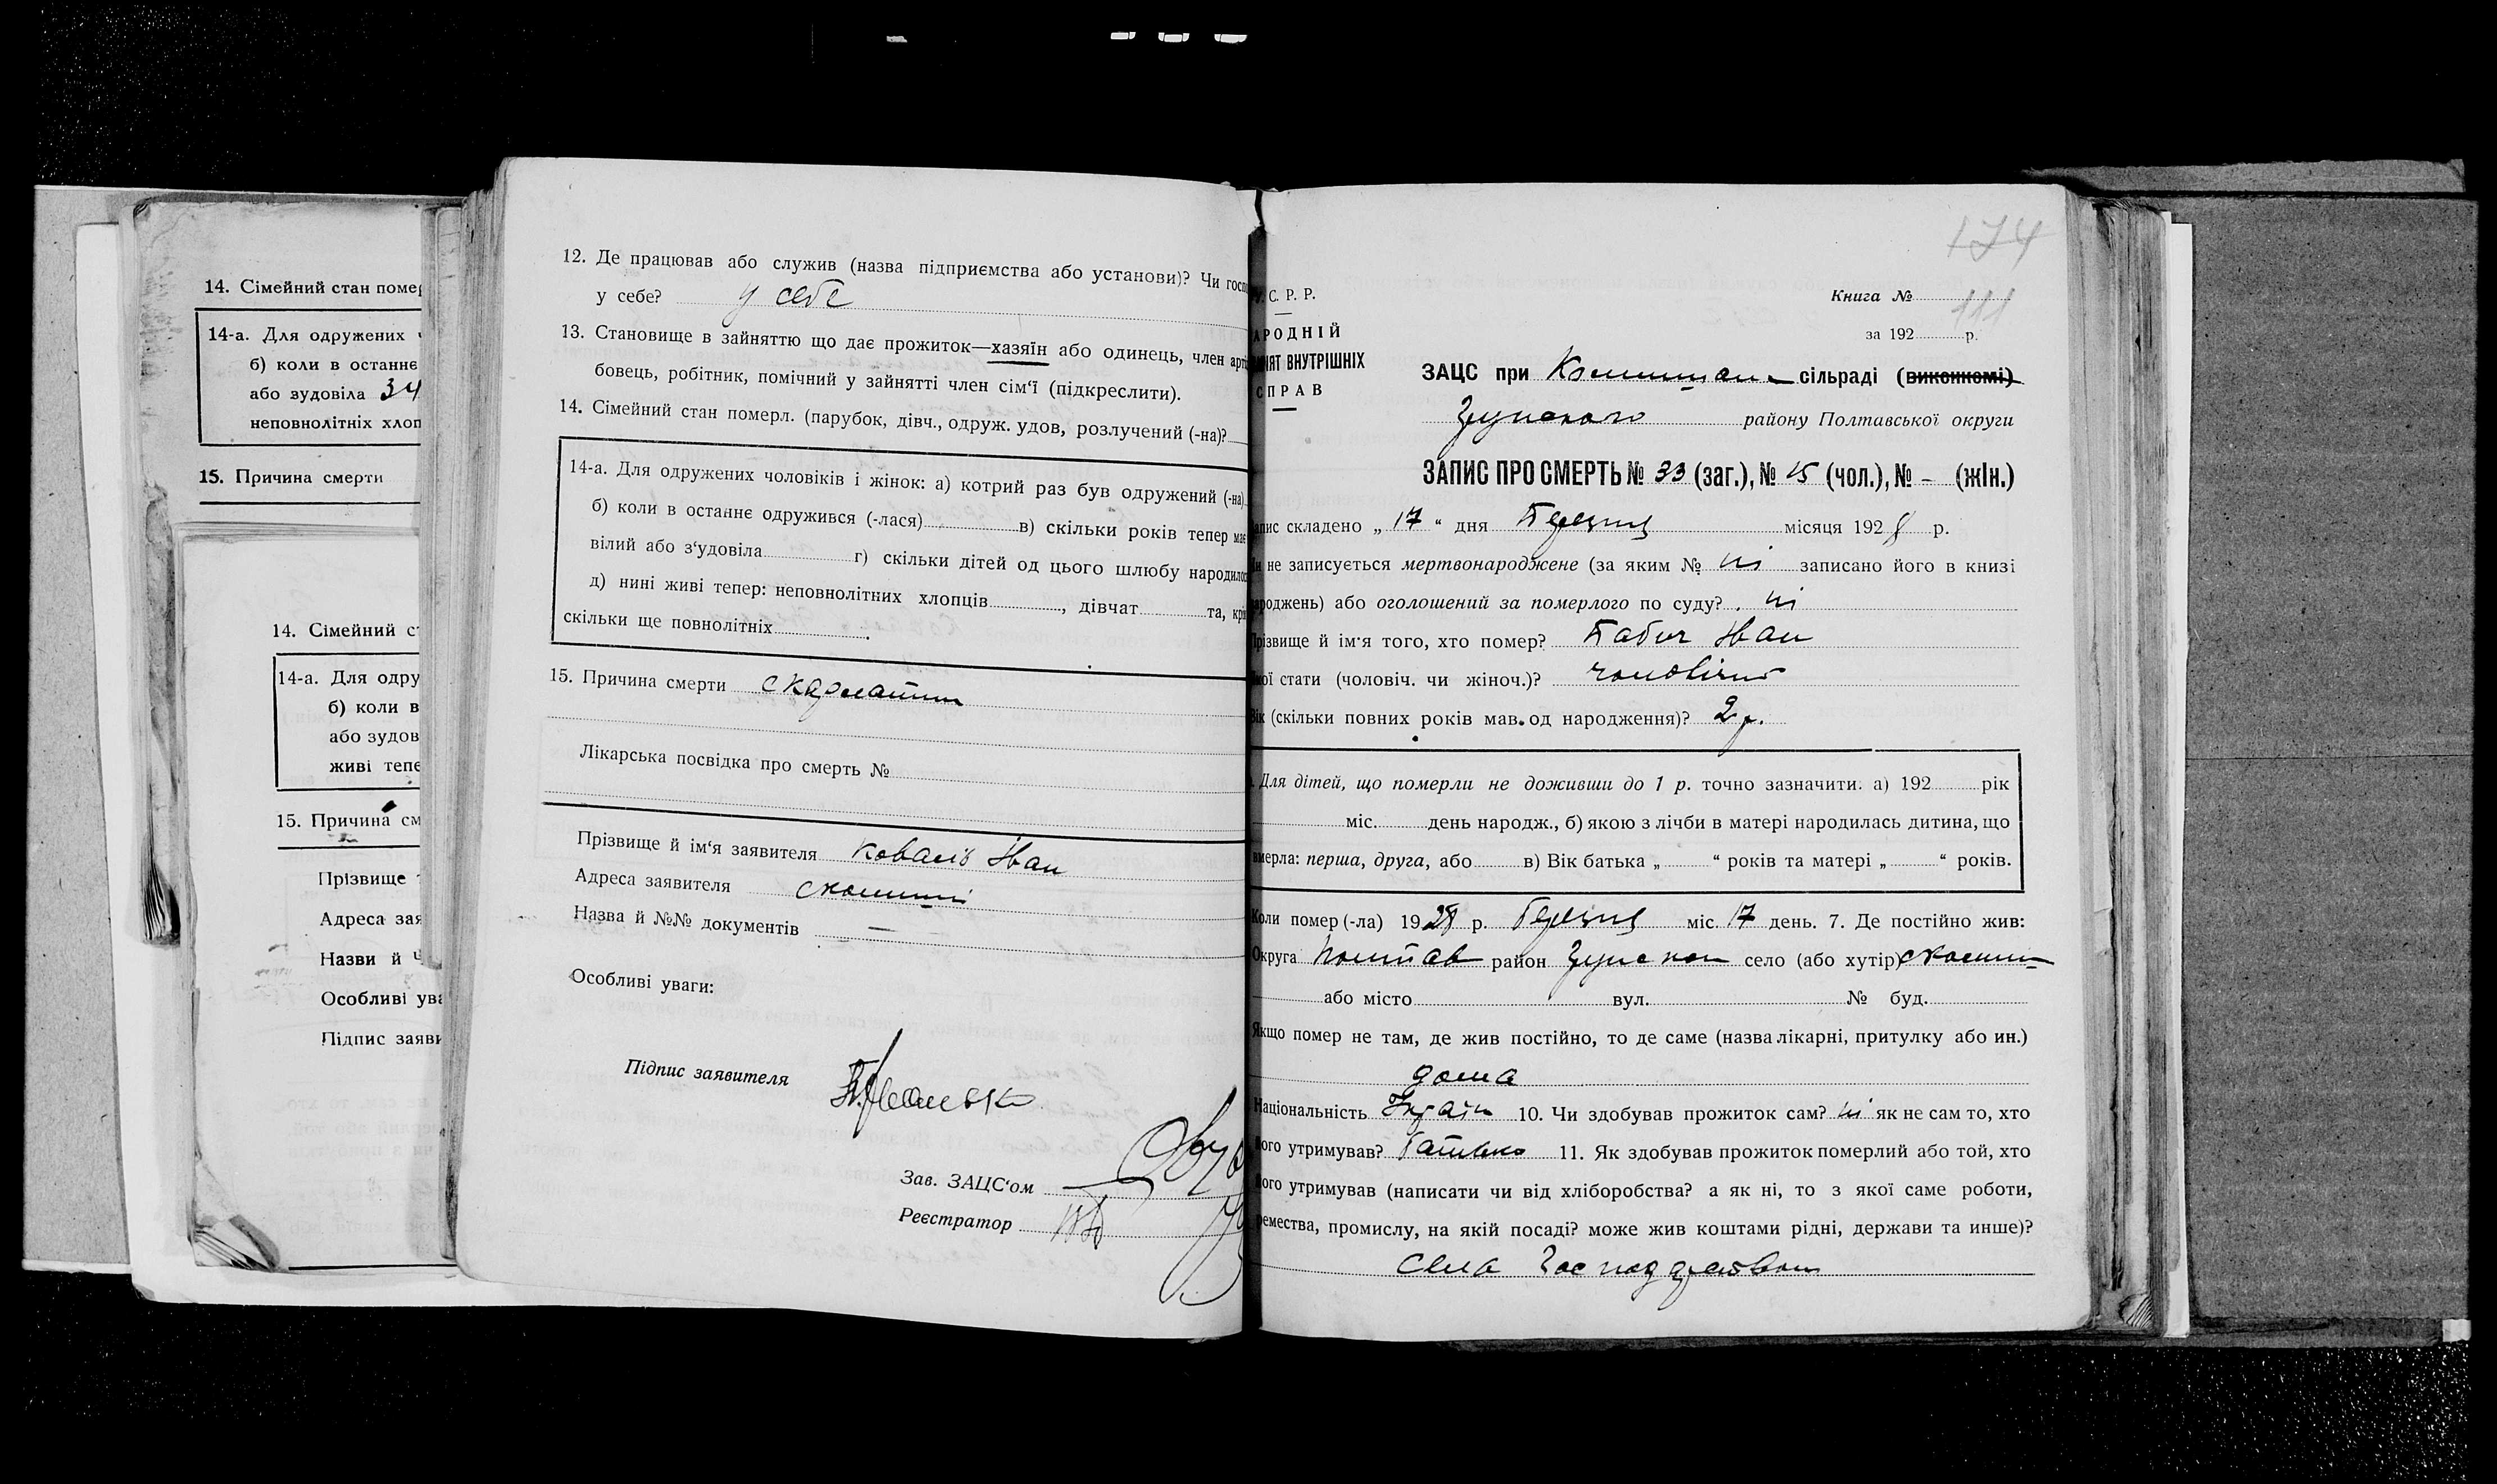 14. Сімейний стан помер
14-а. Для одружених ч
б) коли в останнє
або зудовіла 34
неповнолітніх хлоп
15. Причина смерти
14. Сімейний ст
14-а. Для одру
б) коли в
або зудов
живі тепе
15. Причина см
Прізвище
Адреса зая
Назви й
Особливі ува
Підпис заяви
12. Де працював або служив (назва підприємства або установи)? Чи госп
у себе? у себе
13. Становище в зайняттю що дає прожиток—хазяїн або одинець, член арті
бовець, робітник, помічний у зайнятті член сім'ї (підкреслити).
14. Сімейний стан померл. (парубок, дівч., одруж. удов, розлучений (-на)?
14-а. Для одружених чоловіків і жінок: а) котрий раз був одружений (-на)
б) коли в останнє одружився (-лася) в) скільки років тепер має
вілий або з'удовіла г) скільки дітей од цього шлюбу народилос
д) нині живі тепер: неповнолітних хлопців , дівчат та, крім
скільки ще повнолітніх .
15. Причина смерти скарлатин
Лікарська посвідка про смерть №
Прізвище й ім'я заявителя Коваль Іван
Адреса заявителя
Назва й №№ документів —
Особливі уваги:
Підпис заявителя
Зав. ЗАЦС'ом
Реєстратор
174
У. С. Р. Р.
АРОДНІЙ
ІЯТ ВНУТРІШНІХ
СПРАВ
Книга № 111
за 192 р.
ЗАЦС при сільраді (виконкомі)
району Полтавської округи
ЗАПИС ПРО СМЕРТЬ № 33 (заг.), № 15 (чол.), № - (жін.)
апис складено „ 17 “ дня Березня місяця 1928 р.
и не записується мертвонароджене (за яким № ні записано його в книзі
ароджень) або оголошений за померлого по суду? ні
Прізвище й ім'я того, хто помер? Бабич Іван
кої стати (чоловіч. чи жіноч.)? чоловічої
Вік (скільки повних років мав. од народження)? 2 р.
Для дітей, що померли не доживши до 1 р. точно зазначити: а) 192 рік
міс. день народж., б) якою з лічби в матері народилась дитина, що
вмерла: перша, друга, або в) Вік батька „ “ років та матері „ “ років.
Коли помер (-ла) 1928 р. Березня міс. 17 день. 7. Де постійно жив:
Округа Полтав район село (або хутір)
або місто вул. № буд.
Якщо помер не там, де жив постійно, то де саме (назва лікарні, притулку або ин.)
дома
Національність Україн 10. Чи здобував прожиток сам? ні як не сам то, хто
його утримував? Батько 11. Як здобував прожиток померлий або той, хто
його утримував (написати чи від хліборобства? а як ні, то з якої саме роботи,
ремества, промислу, на якій посаді? може жив коштами рідні, держави та инше)?
Господарством